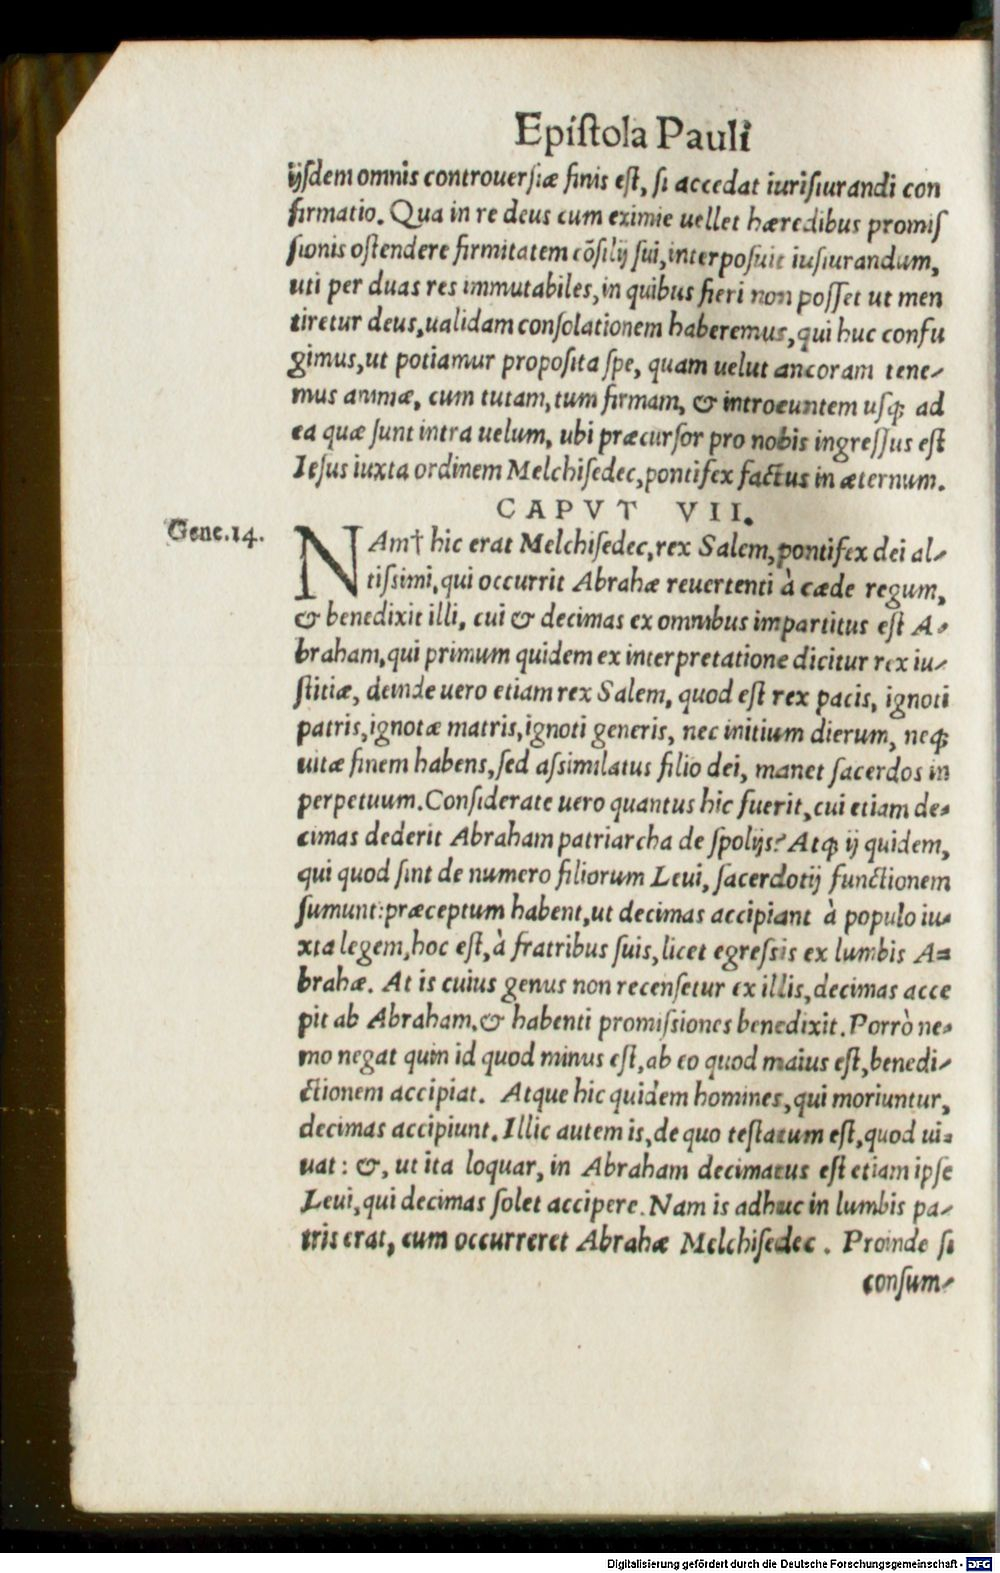 Epiſtola Pauli
ijſdem omnis controuerſiæ finis eſt, ſi accedat iuriſiurandi con
firmatio. Qua in re deus cum eximie uellet hæredibus promiſ
ſionis oſtendere firmitatem cõſilij ſui, interpoſuit iuſiurandum,
uti per duas res immutabiles, in quibus fieri non poſſet ut men
tiretur deus, ualidam conſolationem haberemus, qui huc confu
gimus, ut potiamur propoſita ſpe, quam uelut ancoram tene-
mus animæ, cum tutam, tum firmam, & introeuntem uſq; ad
ea quæ ſunt intra uelum, ubi præcurſor pro nobis ingreſſus eſt
Ieſus iuxta ordinem Melchiſedec, pontifex factus in æternum.
CAPVT VII.
Gene.14.
NAm† hic erat Melchiſedec, rex Salem, pontifex dei al-
tiſsimi, qui occurrit Abrahæ reuertenti à cæde regum,
& benedixit illi, cui & decimas ex omnibus impartitus eſt A-
braham, qui primum quidem ex interpretatione dicitur rex iu-
ſtitiæ, deinde uero etiam rex Salem, quod eſt rex pacis, ignoti
patris, ignotæ matris, ignoti generis, nec initium dierum, neq;
uitæ finem habens, ſed aſsimilatus filio dei, manet ſacerdos in
perpetuum. Conſiderate uero quantus hic fuerit, cui etiam de-
cimas dederit Abraham patriarcha de ſpolijs? Atq; ij quidem,
qui quod ſint de numero filiorum Leui, ſacerdotij functionem
ſumunt: præceptum habent, ut decimas accipiant à populo iu-
xta legem, hoc eſt, à fratribus ſuis, licet egreſsis ex lumbis A=
brahæ. At is cuius genus non recenſetur ex illis, decimas acce
pit ab Abraham, & habenti promiſsiones benedixit. Porrò ne-
mo negat quin id quod minus eſt, ab eo quod maius eſt, benedi-
ctionem accipiat. Atque hic quidem homines, qui moriuntur,
decimas accipiunt. Illic autem is, de quo teſtatum eſt, quod ui=
uat: &, ut ita loquar, in Abraham decimatus eſt etiam ipſe
Leui, qui decimas ſolet accipere. Nam is adhuc in lumbis pa-
tris erat, cum occurreret Abrahæ Melchiſedec. Proinde ſi
conſum-
Digitalisierung gefördert durch die Deutsche Forschungsgemeinschaft - DFG